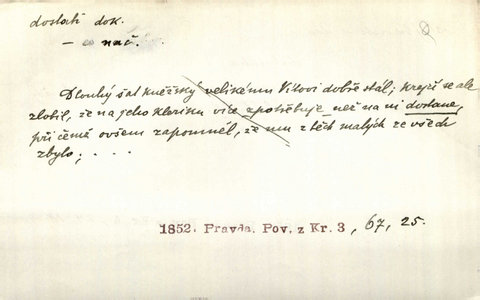 dostati dok.
— co nač.
Dlouhý šat kněžský velikému Vítovi dobře stál; krejčí se ale
zlobil, že na jeho kleriku více zpotřebuje než na ni dostane,
při čemž ovšem zapomněl, že mu z těch malých ze všech
zbylo; . . . .
1852. Pravda. Pov. z Kr. 3, 67, 25.